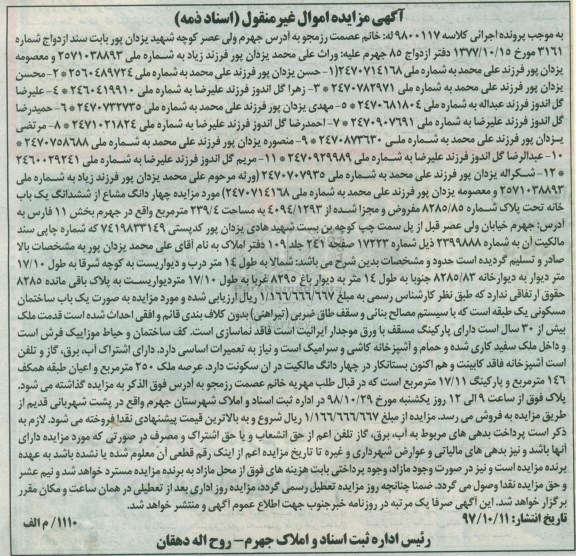 آگهی مزایده اموال غیرمنقول (اسناد ذمه)
به موجب پرونده اجرائی کلاسه ۹۸۰۰۱۱۷له: خانم عصمت رزمجو به آدرس جهرم ولی عصر کوچه شهید یزدان پور بابت سند ازدواج شماره
۳۱۶۱ مورخ ۱۳۷۷/۱۰/۱۵ دفتر ازدواج ۸۵ جهرم علیه: وراث علی محمد یزدان پور فرزند زیاد به شماره ملی ۲۵۷۱۰۳۸۸۹۳ و معصومه
یزدان پور فرزند علی محمد به شماره ملی ۲۴۷۰۷۱۴۱۶۸(۱- حسن یزدان پور فرزند علی محمد به شماره ملی ۲۵۶۰۴۸۹۷۲۴ * ۲-محسن
یزدان پور فرزند علی محمد به شماره ملی ۲۴۷۰۷۸۲۹۷۱ * ۳- زهرا گل اندوز فرزند علیرضا به شماره ملی ۲۴۶۰۴۱۹۹۱۰ * ۴- علیرضا
گل اندوز فرزند عبداله به شماره ملی ۲۴۷۰۶۸۱۸۰۴ * ۵- مهدی یزدان پور فرزند علی محمد به شماره ملی ۲۴۷۰۷۳۲۷۳۵ * ۶- حمیدرضا
گل اندوز فرزند علیرضا به شماره ملی ۲۴۷۰۹۰۷۶۹۱ * ۷- احمدرضا گل اندوز فرزند علیرضا به شماره ملی ۲۴۷۱۰۲۱۸۲۴ * ۸- مرتضی
یزدان پور فرزند علی محمد به شماره ملی ۲۴۷۰۸۷۳۶۳۰ * ۹- منصوره یزدان پور فرزند علی محمد به شماره ملی ۲۴۷۰۷۵۸۶۸۸ *
۱۰- عبدالرضا گل اندوز فرزند علیرضا به شماره ملی ۲۴۷۰۹۲۹۹۸۹ * ۱۱- مریم گل اندوز فرزند علیرضا به شماره ملی ۲۴۶۰۰۲۹۲۴۱
* ۱۲- شکراله یزدان پور فرزند علی محمد به شماره ملی ۲۴۷۰۷۰۷۹۳۵ (ورثه مرحوم علی محمد یزدان پور فرزند زیاد به شماره ملی
۲۵۷۱۰۳۸۸۹۳ و معصومه یزدان پور فرزند علی محمد به شماره ملی ۲۴۷۰۷۱۴۱۶۸) مورد مزایده چهار دانگ مشاع از ششدانگ یک باب
خانه تحت پلاک شماره ۸۲۸۵/۸۵ مفروض و مجزا شده از ۴۰۹۴/۱۲۹۳ به مساحت ۲۳۹/۴ مترمربع واقع در جهرم بخش ۱۱ فارس به
آدرس: جهرم خیابان ولی عصر قبل از پل سمت چپ کوچه بن بست شهید هادی یزدان پور کدپستی ۷۴۱۹۸۳۳۱۴۹ که شماره چاپی سند
مالکیت آن به شماره ۲۳۹۹۸۸۸ ذیل شماره ۱۷۲۲۳ صفحه ۲۴۱ جلد ۱۰۹ دفتر املاک به نام آقای علی محمد یزدان پور به مشخصات بالا
صادر و تسلیم گردیده است حدود و مشخصات بدین شرح می باشد: شمالا به طول ۱۴ متر درب و دیواریست به کوچه شرقا به طول ۱۷/۱۰
متر دیوار به دیوارخانه ۸۲۸۵/۸۳ جنوبا به طول ۱۴ متر به دیوار باغ ۸۳۹۵ غربا به طول ۱۷/۱۰ متردیواریست به پلاک باقی مانده ۸۲۸۵
حقوق ارتفاقی ندارد که طبق نظر کارشناس رسمی به مبلغ ۱/۱۶۶/۶۶۶/۶۶۷ ریال ارزیابی شده و مورد مزایده به صورت یک باب ساختمان
مسکونی یک طبقه است که با سیستم مصالح بنائی و سقف طاق ضربی (تیرآهنی) بدون کلاف بندی قائم و افقی احداث شده است قدمت ملک
بیش از ۳۰ سال است دارای پارکینگ مسقف با ورق موجدار ایرانیت است فاقد نماسازی است. کف ساختمان و حیاط موزاییک فرش است
و داخل ملک سفید کاری شده و حمام و آشپزخانه کاشی و سرامیک است و نیاز به تعمیرات اساسی دارد. دارای اشتراک آب، برق، گاز و تلفن
است آشپزخانه فاقد کابینت و هم اکنون بستانکار در چهار دانگ مالکیت در آن سکونت دارد. عرصه ملک ۲۵۰ مترمربع و اعیان طبقه همکف
۱۴۶ مترمربع و پارکینگ ۱۷/۱۱ مترمربع است که در قبال طلب مهریه خانم عصمت رزمجو به آدرس فوق الذکر به مزایده گذاشته می شود.
پلاک فوق از ساعت ۹ الی ۱۲ روز یکشنبه مورخ ۹۸/۱۰/۲۹ در اداره ثبت اسناد و املاک شهرستان جهرم واقع در پشت شهربانی قدیم از
طریق مزایده به فروش می رسد. مزایده از مبلغ ۱/۱۶۶/۶۶۶/۶۶۷ ریال شروع و به بالاترین قیمت پیشنهادی نقدا فروخته می شود. لازم به
ذکر است پرداخت بدهی های مربوط به آب، برق، گاز تلفن اعم از حق انشعاب و یا حق اشتراک و مصرف در صورتی که مورد مزایده دارای
آنها باشد و نیز بدهی های مالیاتی و عوارض شهرداری و غیره تا تاریخ مزایده اعم از اینک رقم قطعی آن معلوم شده یا نشده باشد به عهده
برنده مزایده است و نیز در صورت وجود مازاد، وجوه پرداختی بابت هزینه های فوق از محل مازاد به برنده مزایده مسترد خواهد شد و نیم عشر
و حق مزایده نقدا وصول می گردد. ضمنا چنانچه روز مزایده تعطیل رسمی گردد، مزایده روز اداری بعد از تعطیلی در همان ساعت و مکان مقرر
برگزار خواهد شد. این آگهی صرفا یک مرتبه در روزنامه خبرجنوب جهت اطلاع عموم آگهی و منتشر خواهد شد.
تاریخ انتشار: ۹۷/۱۰/۱۱
۱۱۱۰/ م الف
رئیس اداره ثبت اسناد و املاک جهرم- روح اله دهقان